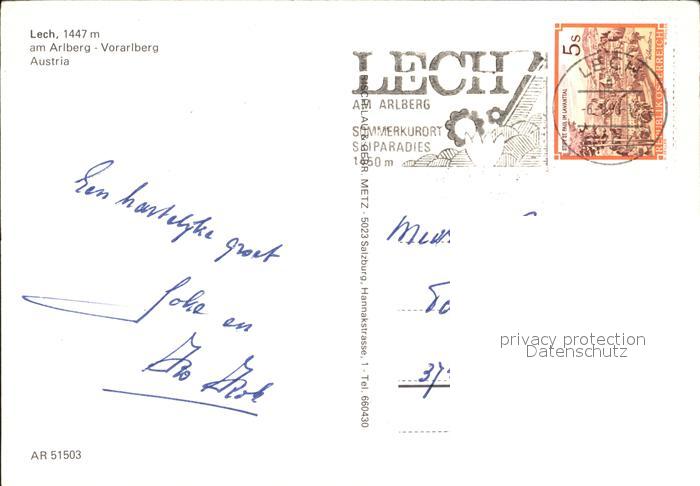 Lech, 1447 m
am Arlberg - Vorarlberg
Austria
LECH
AM ARLBERG
SOMMERKURORT
SKIPARADIES
1450 m
5s
LECH
STIFT ST. PAUL IM LAVANTTAL
REPUBLIK ÖSTERREICH
METZ - 5023 Salzburg, Hannakstrasse, 1 - Tel. 660430
Een hartelijke groet
Joke en
37
privacy protection
Datenschutz
AR 51503